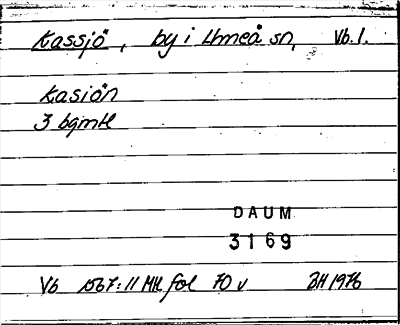 Kassjö, by i Umeå sn, Vb. l.
Kasiön
3 bgmtl
DAUM
3169
Vb 1567:11 Mtl fol 70 v BH 1976